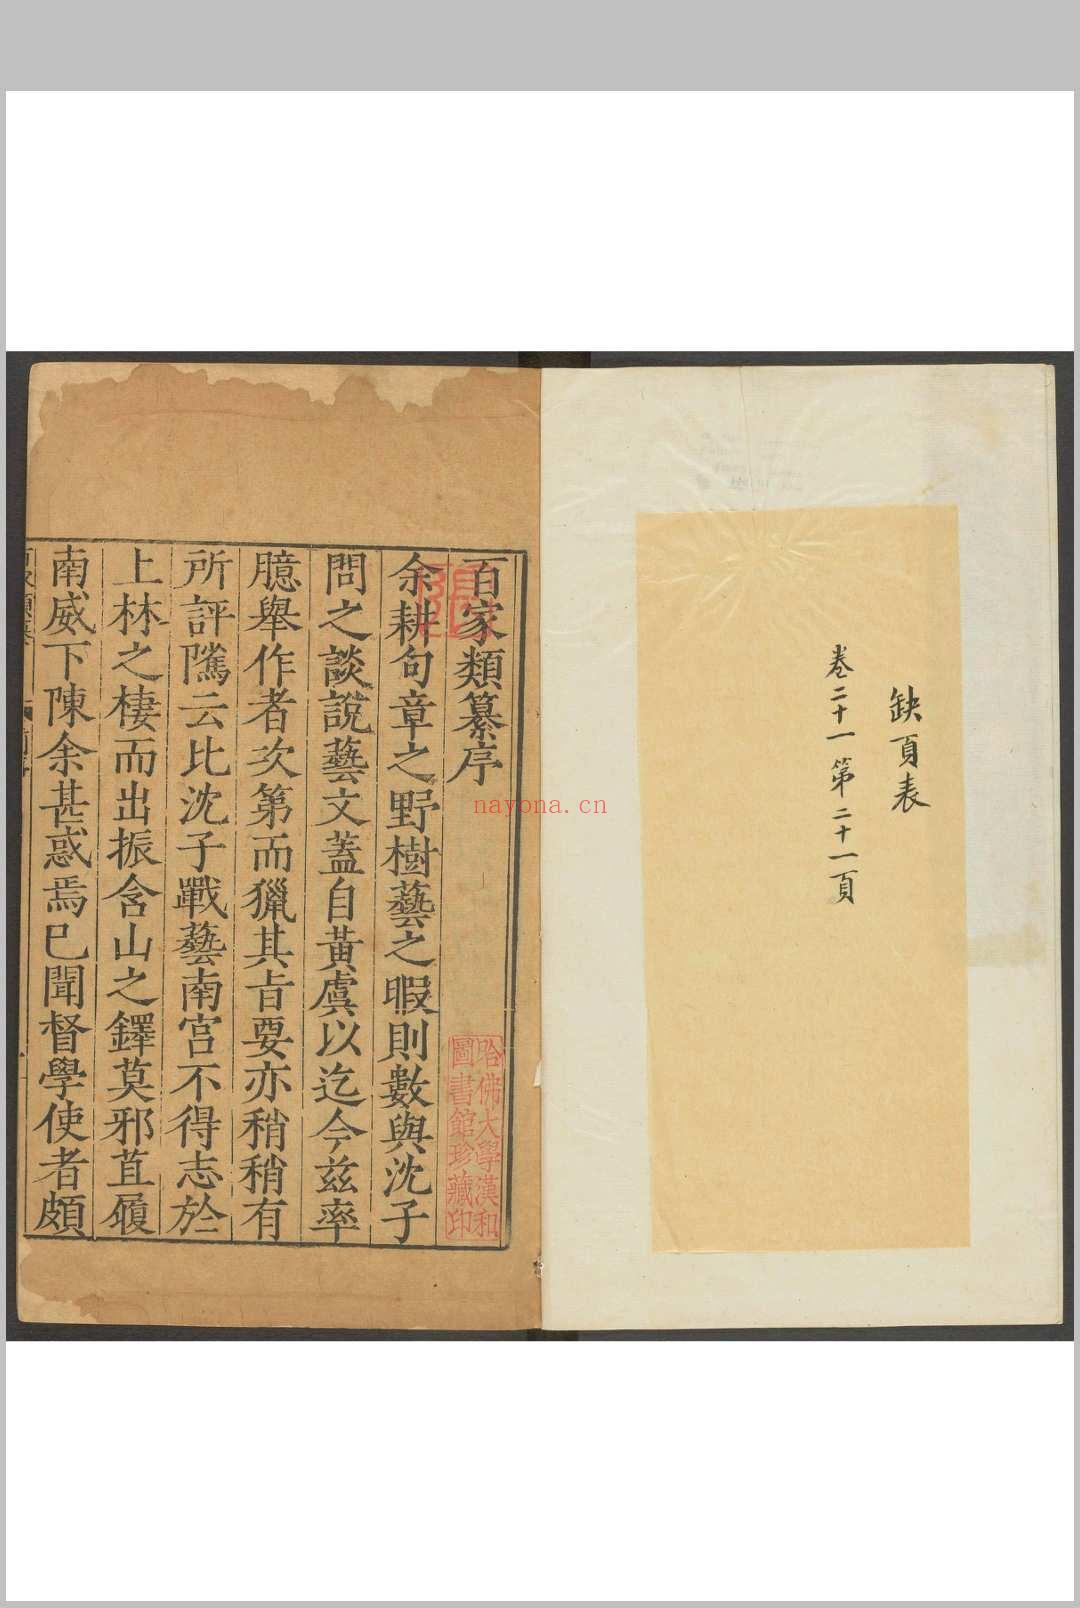 缺頁表
卷二十一 第二十一頁
百家類纂序
余耕句章之野樹藝之暇則數與沈子
問之談說藝文蓋自黃虞以迄今茲率
臆舉作者次第而獵其旨要亦稍稍有
所評隲云比沈子戰藝南宮不得志於
上林之棲而出振含山之鐸莫邪苴履
南威下陳余甚惑焉已聞督學使者頗
哈佛大學漢和
圖書館珍藏印
nayona.cn